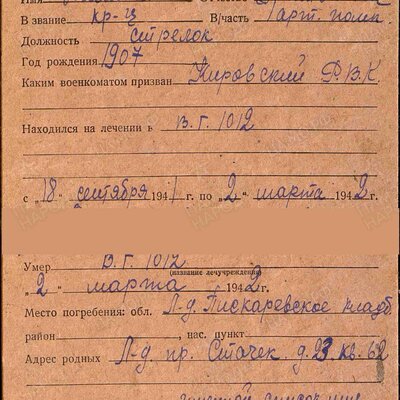 В звание кр-ц В/часть Арт. полк
Должность Стрелок
Год рождения 1907
Каким военкоматом призван Кировский Р.В.К.
Находился на лечении в В.Г. 1012
с „18" сентября 1941 г. по „2" марта 1942 г.
Умер В.Г. 1012
(название лечучреждения)
„2" марта 1942 г.
Место погребения: обл. Л-д Пискаревское кладб
район , нас. пункт
Адрес родных Л-д пр. Стачек д. 23 кв. 62